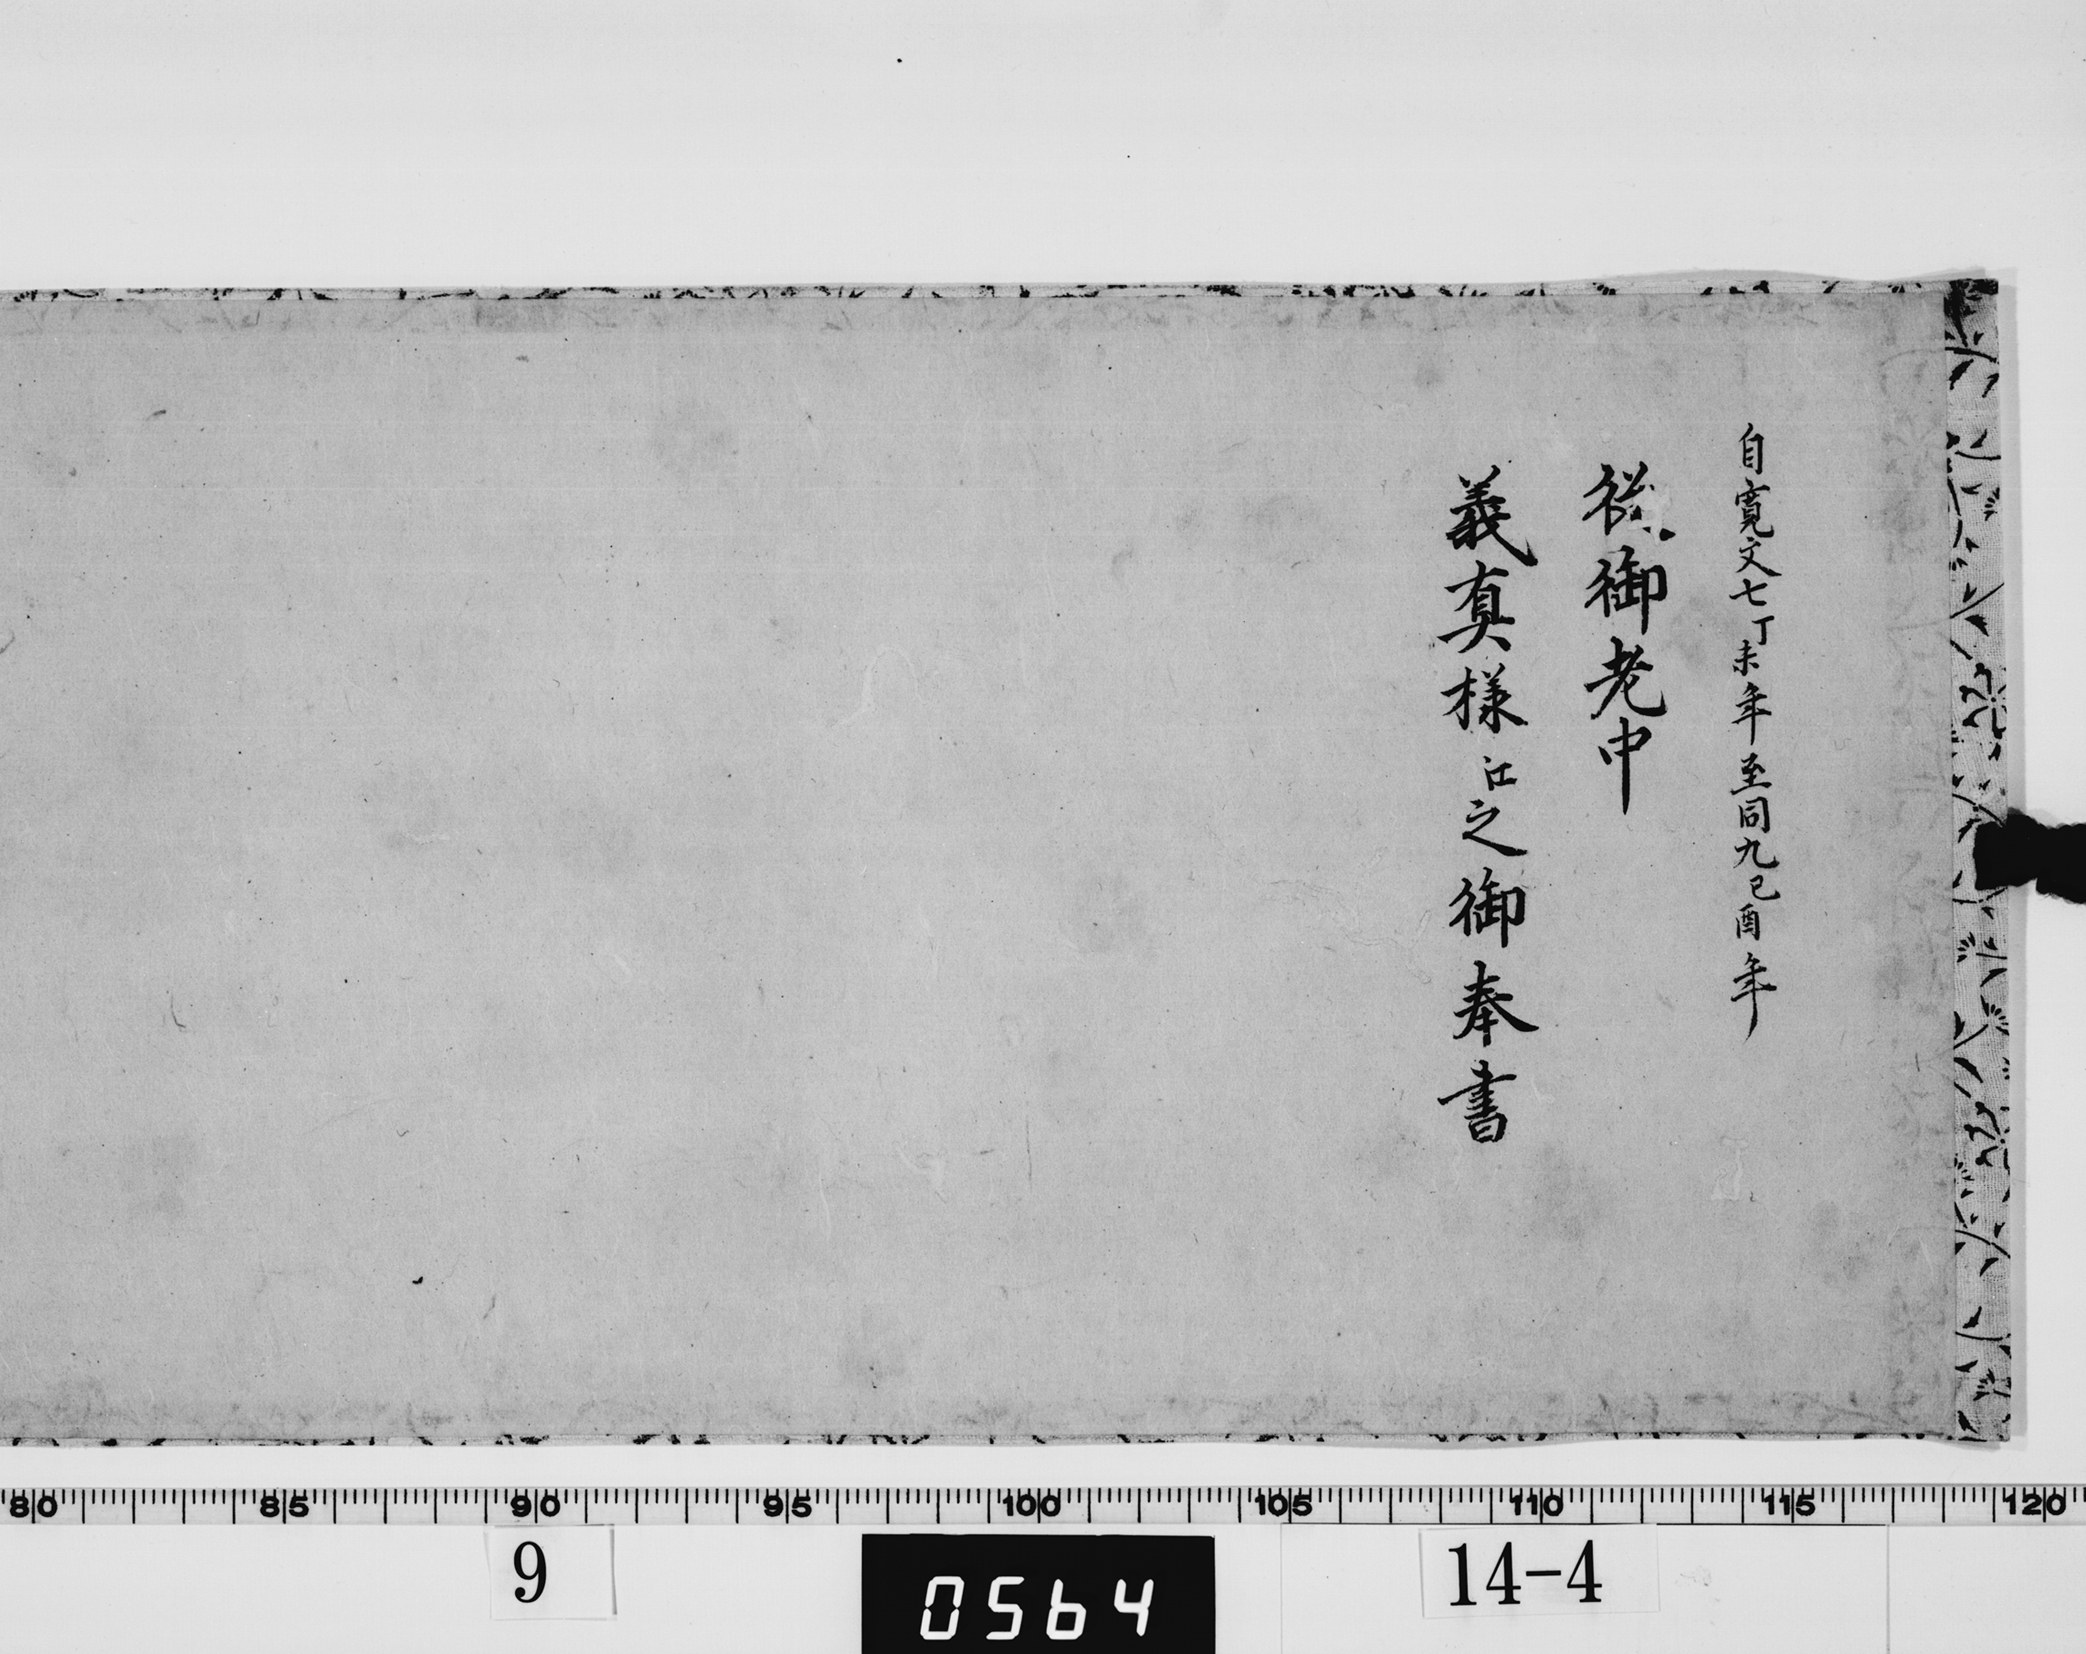 自寛文七丁未年至同九己酉年
従御老中
義真様江之御奉書
80 85 90 95 100 105 110 115 120
9
0564
14-4